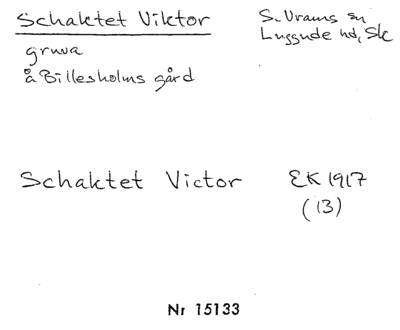 Schaktet Viktor
gruva
å Billesholms gård
S. Vrams sn
Luggude hd, Sk
Schaktet Victor
EK 1917
(13)
Nr 15133